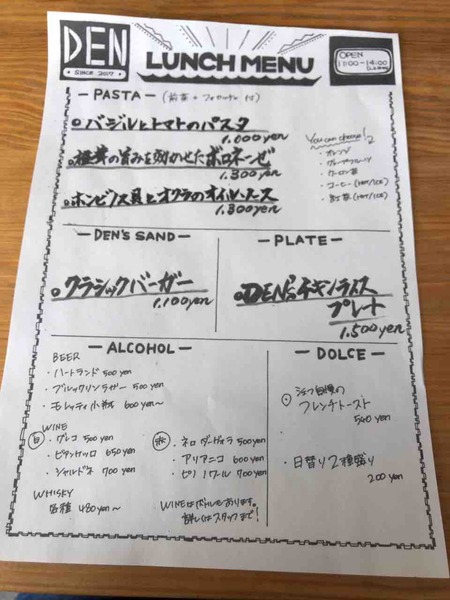 DEN
SINCE 2017
LUNCH MENU
OPEN
11:00-14:00
PASTA (前菜 + フォカッチャ 付)
バジルとトマトのパスタ
1,000yen
の旨みを効かせたボロネーゼ
1,300yen
ホンビノス貝とオクラのオイルソース
1,300yen
You can choose!
・オレンジ
・グレープフルーツ
・ウーロン茶
・コーヒー (HOT/ICE)
・紅茶 (HOT/ICE)
DEN'S SAND
クラシックバーガー
1,100yen
PLATE
DEN'sチキンライス
プレート
1,500yen
ALCOHOL
BEER
・ハートランド 500yen
・ブルックリンラガー 500yen
・モレッティ小瓶 600yen〜
WINE
白 ・グレコ 500yen
・ビアンケッロ 650yen
・シャルドネ 700yen
赤 ・ネロダーヴォラ 500yen
・アリアニコ 600yen
・ピノノワール 700yen
WHISKY
各種 480yen〜
WINEはボトルもあります。
詳しくはスタッフまで!
DOLCE
・シェフ自慢の
フレンチトースト
500yen
・日替り2種盛り
200yen